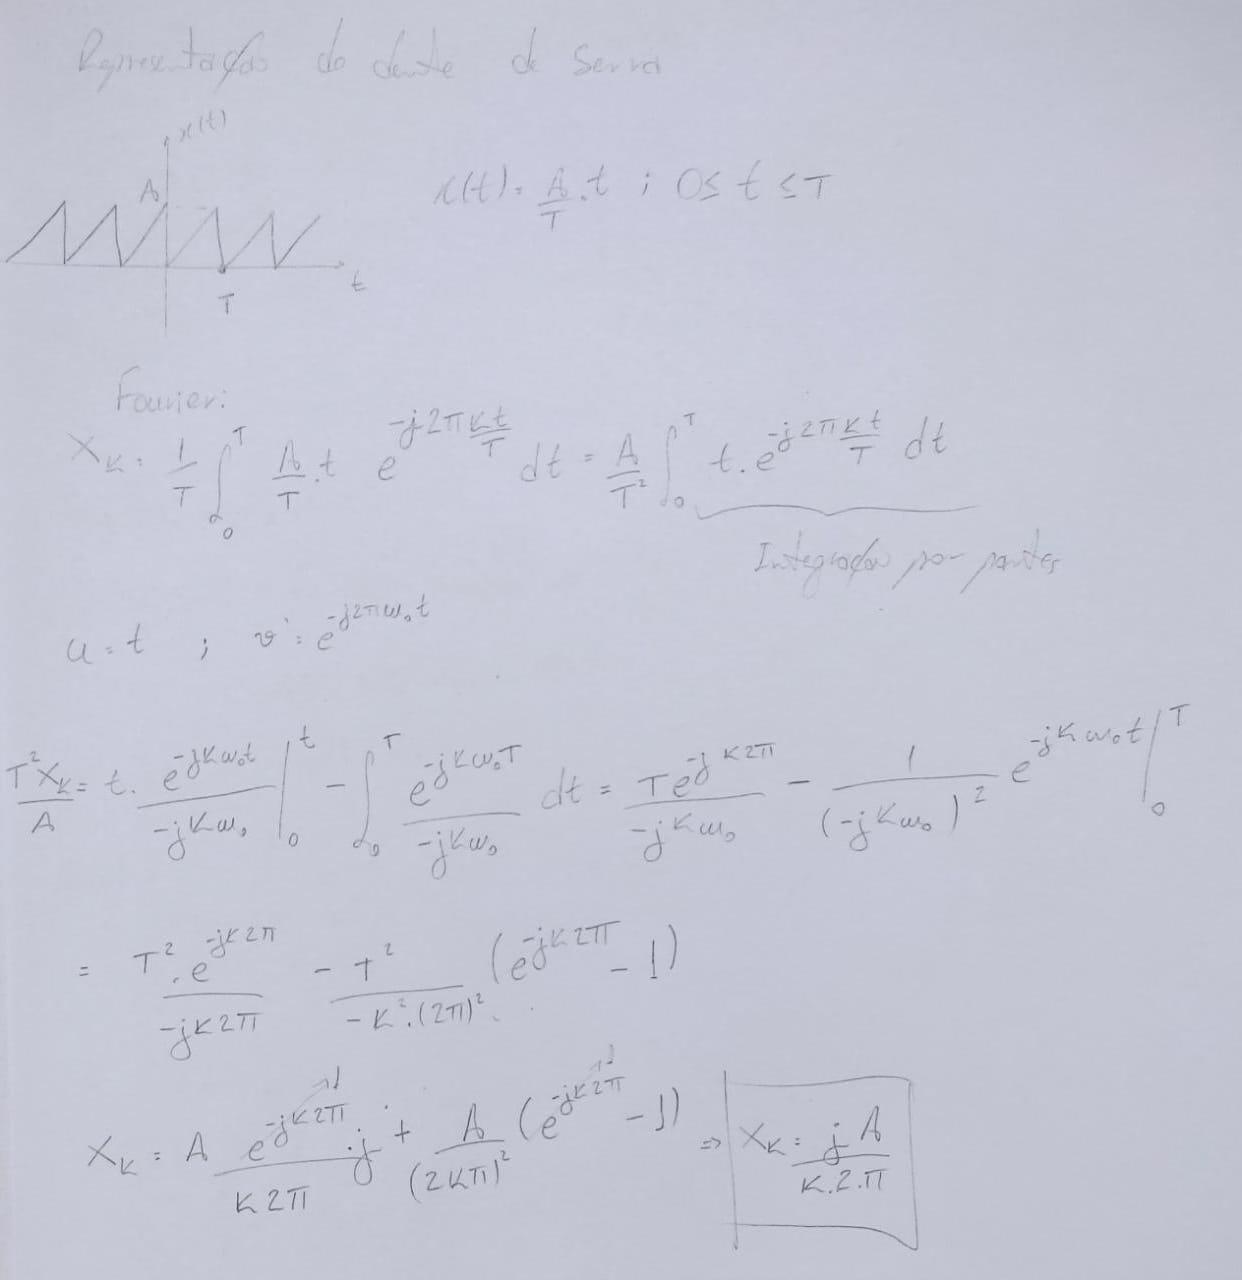 Representação do dente de Serra
x(t)
A
t
T
x(t) = A/T . t ; 0 ≤ t ≤ T
Fourier:
X_K = 1/T ∫_0^T A/T . t e^{-j2πKt/T} dt = A/T² ∫_0^T t . e^{-j2πKt/T} dt
Integração por partes
u = t ; v' = e^{-j2πω₀t}
T²X_K/A = t . e^{-jKω₀t}/(-jKω₀) |_0^t - ∫_0^T e^{-jKω₀T}/(-jKω₀) dt = Te^{-jK2π}/(-jKω₀) - 1/(-jKω₀)² e^{-jKω₀t} |_0^T
= T² . e^{-jK2π}/(-jK2π) - T²/(-K² . (2π)²) (e^{-jK2π} - 1)
X_K = A e^{-jK2π}/(K2π) . j + A/(2Kπ)² (e^{-jK2π} - 1) ⇒ X_K = jA/(K.2.π)